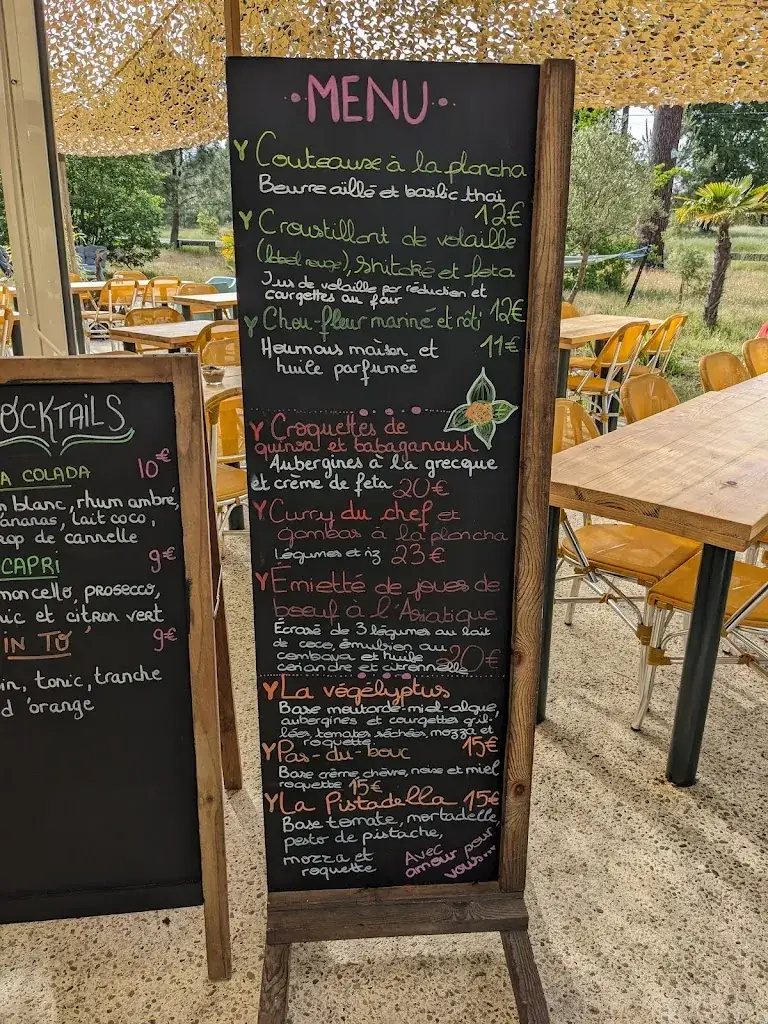 MENU
Couteaux à la plancha
Beurre aillé et basilic thaï
12€
Croustillant de volaille
(label rouge), shitaké et feta
Jus de volaille par réduction et
courgettes au four
12€
Chou-fleur mariné et rôti
11€
Houmous maison et
huile parfumée
Croquettes de
quinoa et babaganoush
Aubergines à la grecque
et crème de feta 20€
Curry du chef et
Gambas à la plancha
Légumes et riz 23€
Émietté de joues de
boeuf à l'Asiatique
Écrasé de 3 légumes au lait
de coco, émulsion au
combava et huile
coriandre et citronnelle 20€
La végélyptus
Base moutarde-miel-algue,
aubergines et courgettes gril-
lées, tomates séchées, mozza et
roquette 15€
Pas-du-bouc
Base crème, chèvre, noix et miel
roquette 15€
La Pistadella 15€
Base tomate, mortadelle,
pesto de pistache,
mozza et
roquette
Avec
amour pour
vous...
OCKTAILS
A COLADA 10€
n blanc, rhum ambré,
ananas, lait coco,
rop de cannelle
CAPRI 9€
moncello, prosecco,
nic et citron vert
IN TO 9€
in, tonic, tranche
d'orange